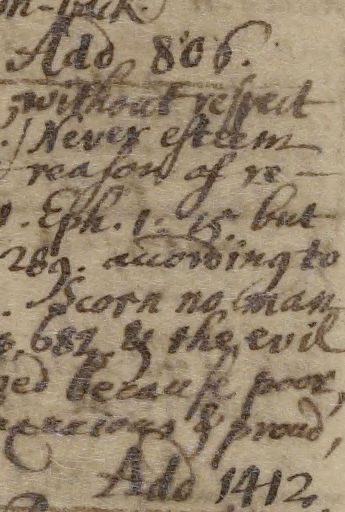 on-back.
Add 806.
, without respect
. Never esteem
reason of re-
. Eph. 1. 15. but
289. according to
. Scorn no man
682. & the evil
ged because poor,
& proud,
Add 1412.